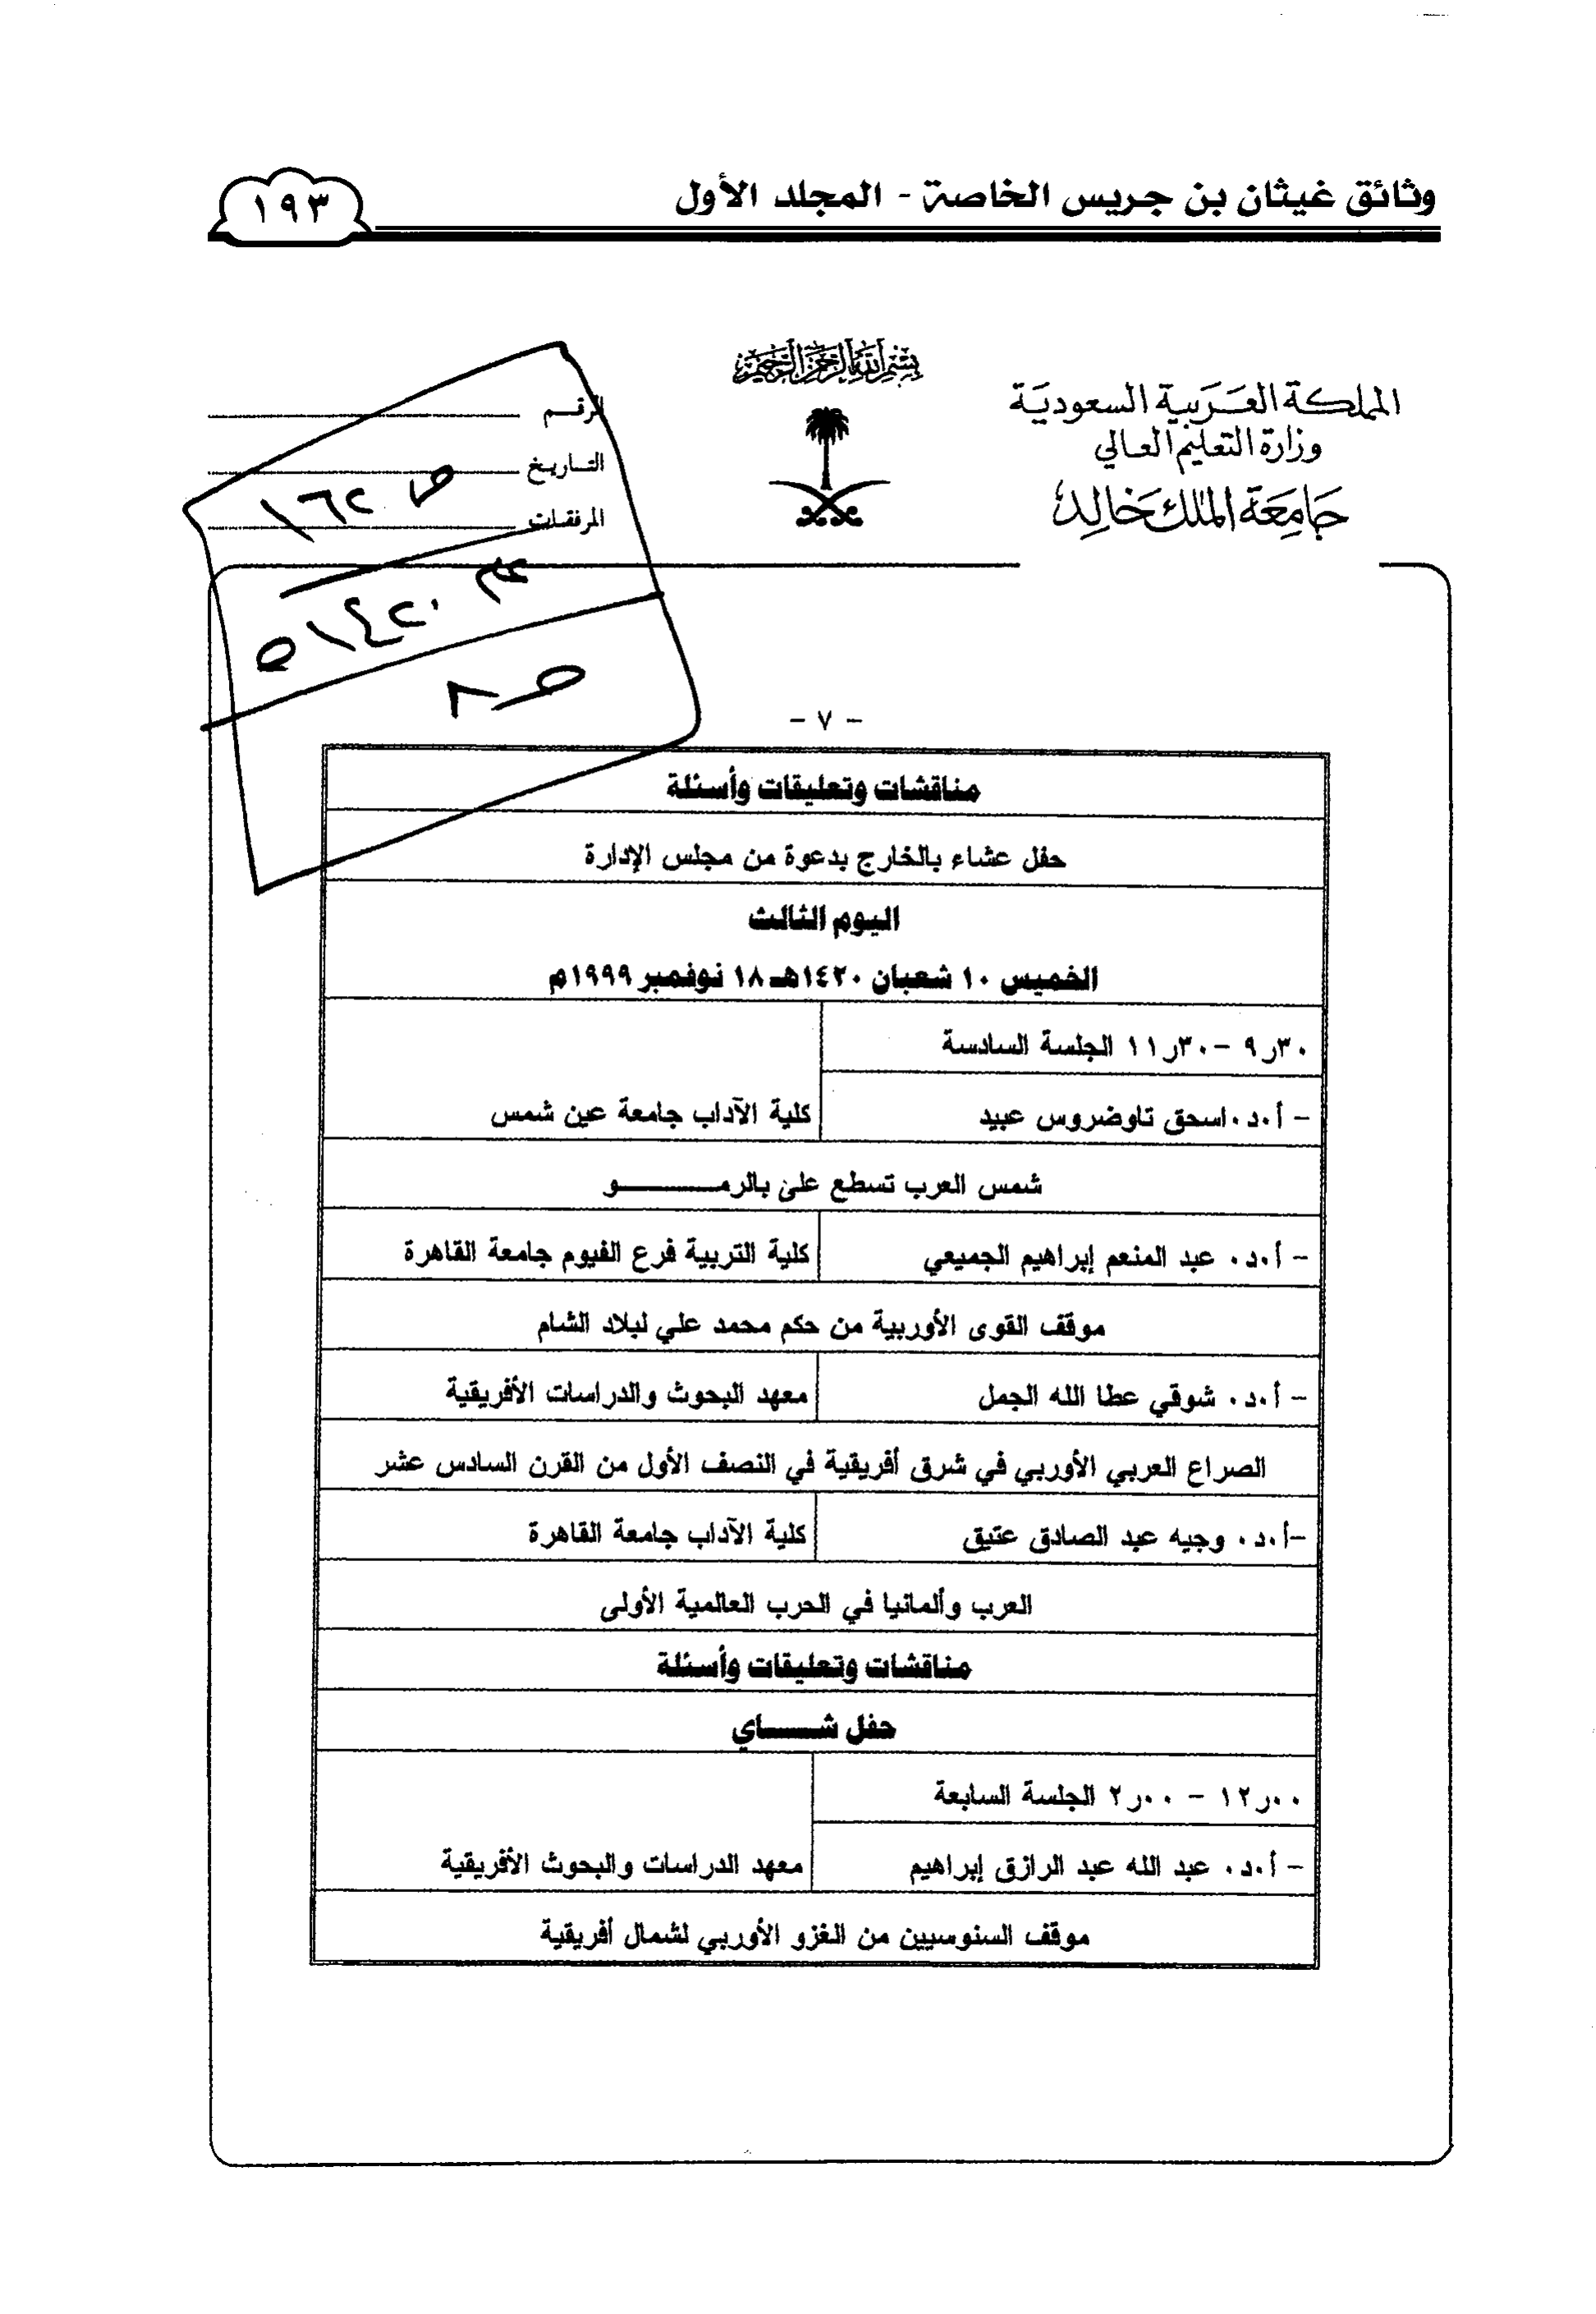 وثائق غيثان بن جريس الخاصة - المجلد الأول
١٩٣
بسم الله الرحمن الرحيم
المملكة العربية السعودية
وزارة التعليم العالي
جامعة الملك خالد
الرقم
التاريخ
المرفقات
ص ١٦٢
١٤٢٠ هـ
ص ٨
- ٧ -
مناقشات وتعليقات وأسئلة
حفل عشاء بالخارج بدعوة من مجلس الإدارة
اليوم الثالث
الخميس ١٠ شعبان ١٤٢٠هـ ١٨ نوفمبر ١٩٩٩م
٩٫٣٠ - ١١٫٣٠ الجلسة السادسة
- أ.د.اسحق تاوضروس عبيد كلية الآداب جامعة عين شمس
شمس العرب تسطع على بالرمـــــو
- أ.د. عبد المنعم إبراهيم الجميعي كلية التربية فرع الفيوم جامعة القاهرة
موقف القوى الأوربية من حكم محمد علي لبلاد الشام
- أ.د. شوقي عطا الله الجمل معهد البحوث والدراسات الأفريقية
الصراع العربي الأوربي في شرق أفريقية في النصف الأول من القرن السادس عشر
-أ.د. وجيه عبد الصادق عتيق كلية الآداب جامعة القاهرة
العرب وألمانيا في الحرب العالمية الأولى
مناقشات وتعليقات وأسئلة
حفل شـــــاي
١٢٫٠٠ - ٢٫٠٠ الجلسة السابعة
- أ.د. عبد الله عبد الرازق إبراهيم معهد الدراسات والبحوث الأفريقية
موقف السنوسيين من الغزو الأوربي لشمال أفريقية